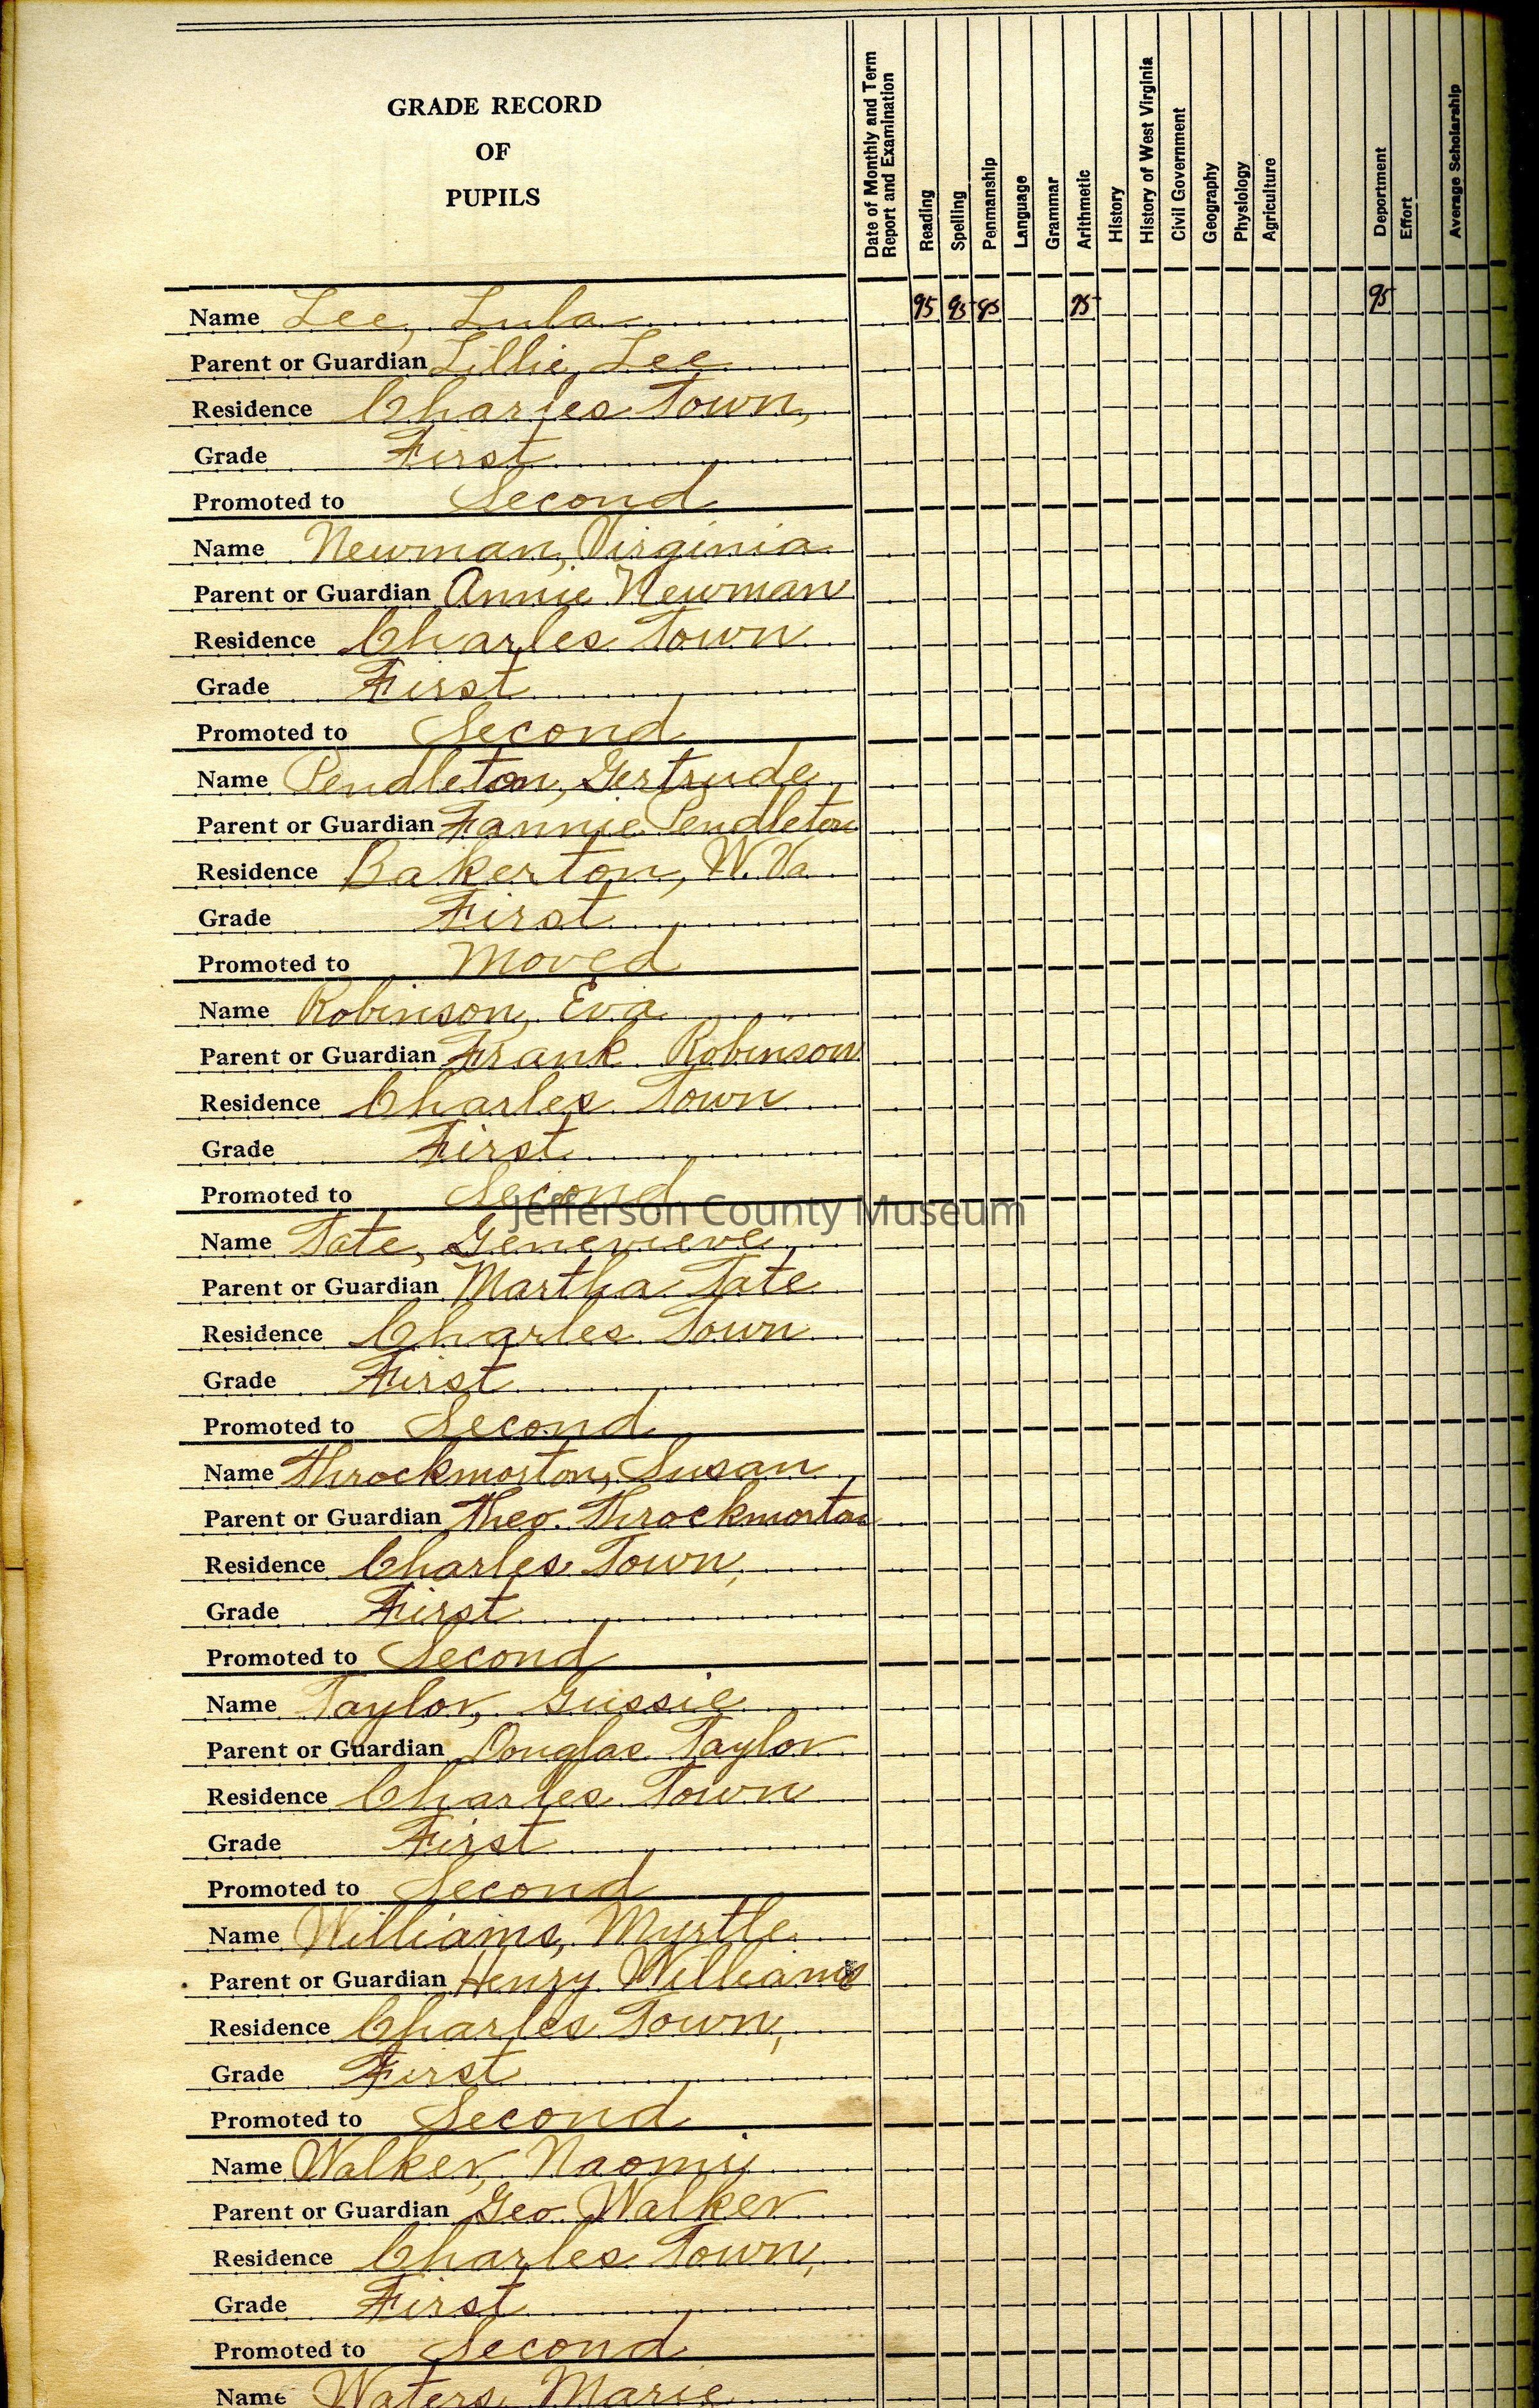 GRADE RECORD
OF
PUPILS
Date of Monthly and Term Report and Examination
Reading
Spelling
Penmanship
Language
Grammar
Arithmetic
History
History of West Virginia
Civil Government
Geography
Physiology
Agriculture
Deportment
Effort
Average Scholarship
Name Lee, Lula 95 95 95
Parent or Guardian Lillie Lee
Residence Charles Town,
Grade First
Promoted to Second
Name Newman, Virginia
Parent or Guardian Annie Newman
Residence Charles Town
Grade First
Promoted to Second
Name Pendleton, Gertrude
Parent or Guardian Fannie Pendleton
Residence Bakerton, W. Va
Grade First
Promoted to Moved
Name Robinson, Eva
Parent or Guardian Frank Robinson
Residence Charles Town
Grade First
Promoted to Second
Jefferson County Museum
Name Tate, Genevieve
Parent or Guardian Martha Tate
Residence Charles Town
Grade First
Promoted to Second
Name Throckmorton, Susan
Parent or Guardian Theo. Throckmorton
Residence Charles Town,
Grade First
Promoted to Second
Name Taylor, Gussie
Parent or Guardian Douglas Taylor
Residence Charles Town
Grade First
Promoted to Second
Name Williams, Myrtle
Parent or Guardian Henry Williams
Residence Charles Town,
Grade First
Promoted to Second
Name Walker, Naomi
Parent or Guardian Geo. Walker
Residence Charles Town,
Grade First
Promoted to Second
Name Waters, Marie